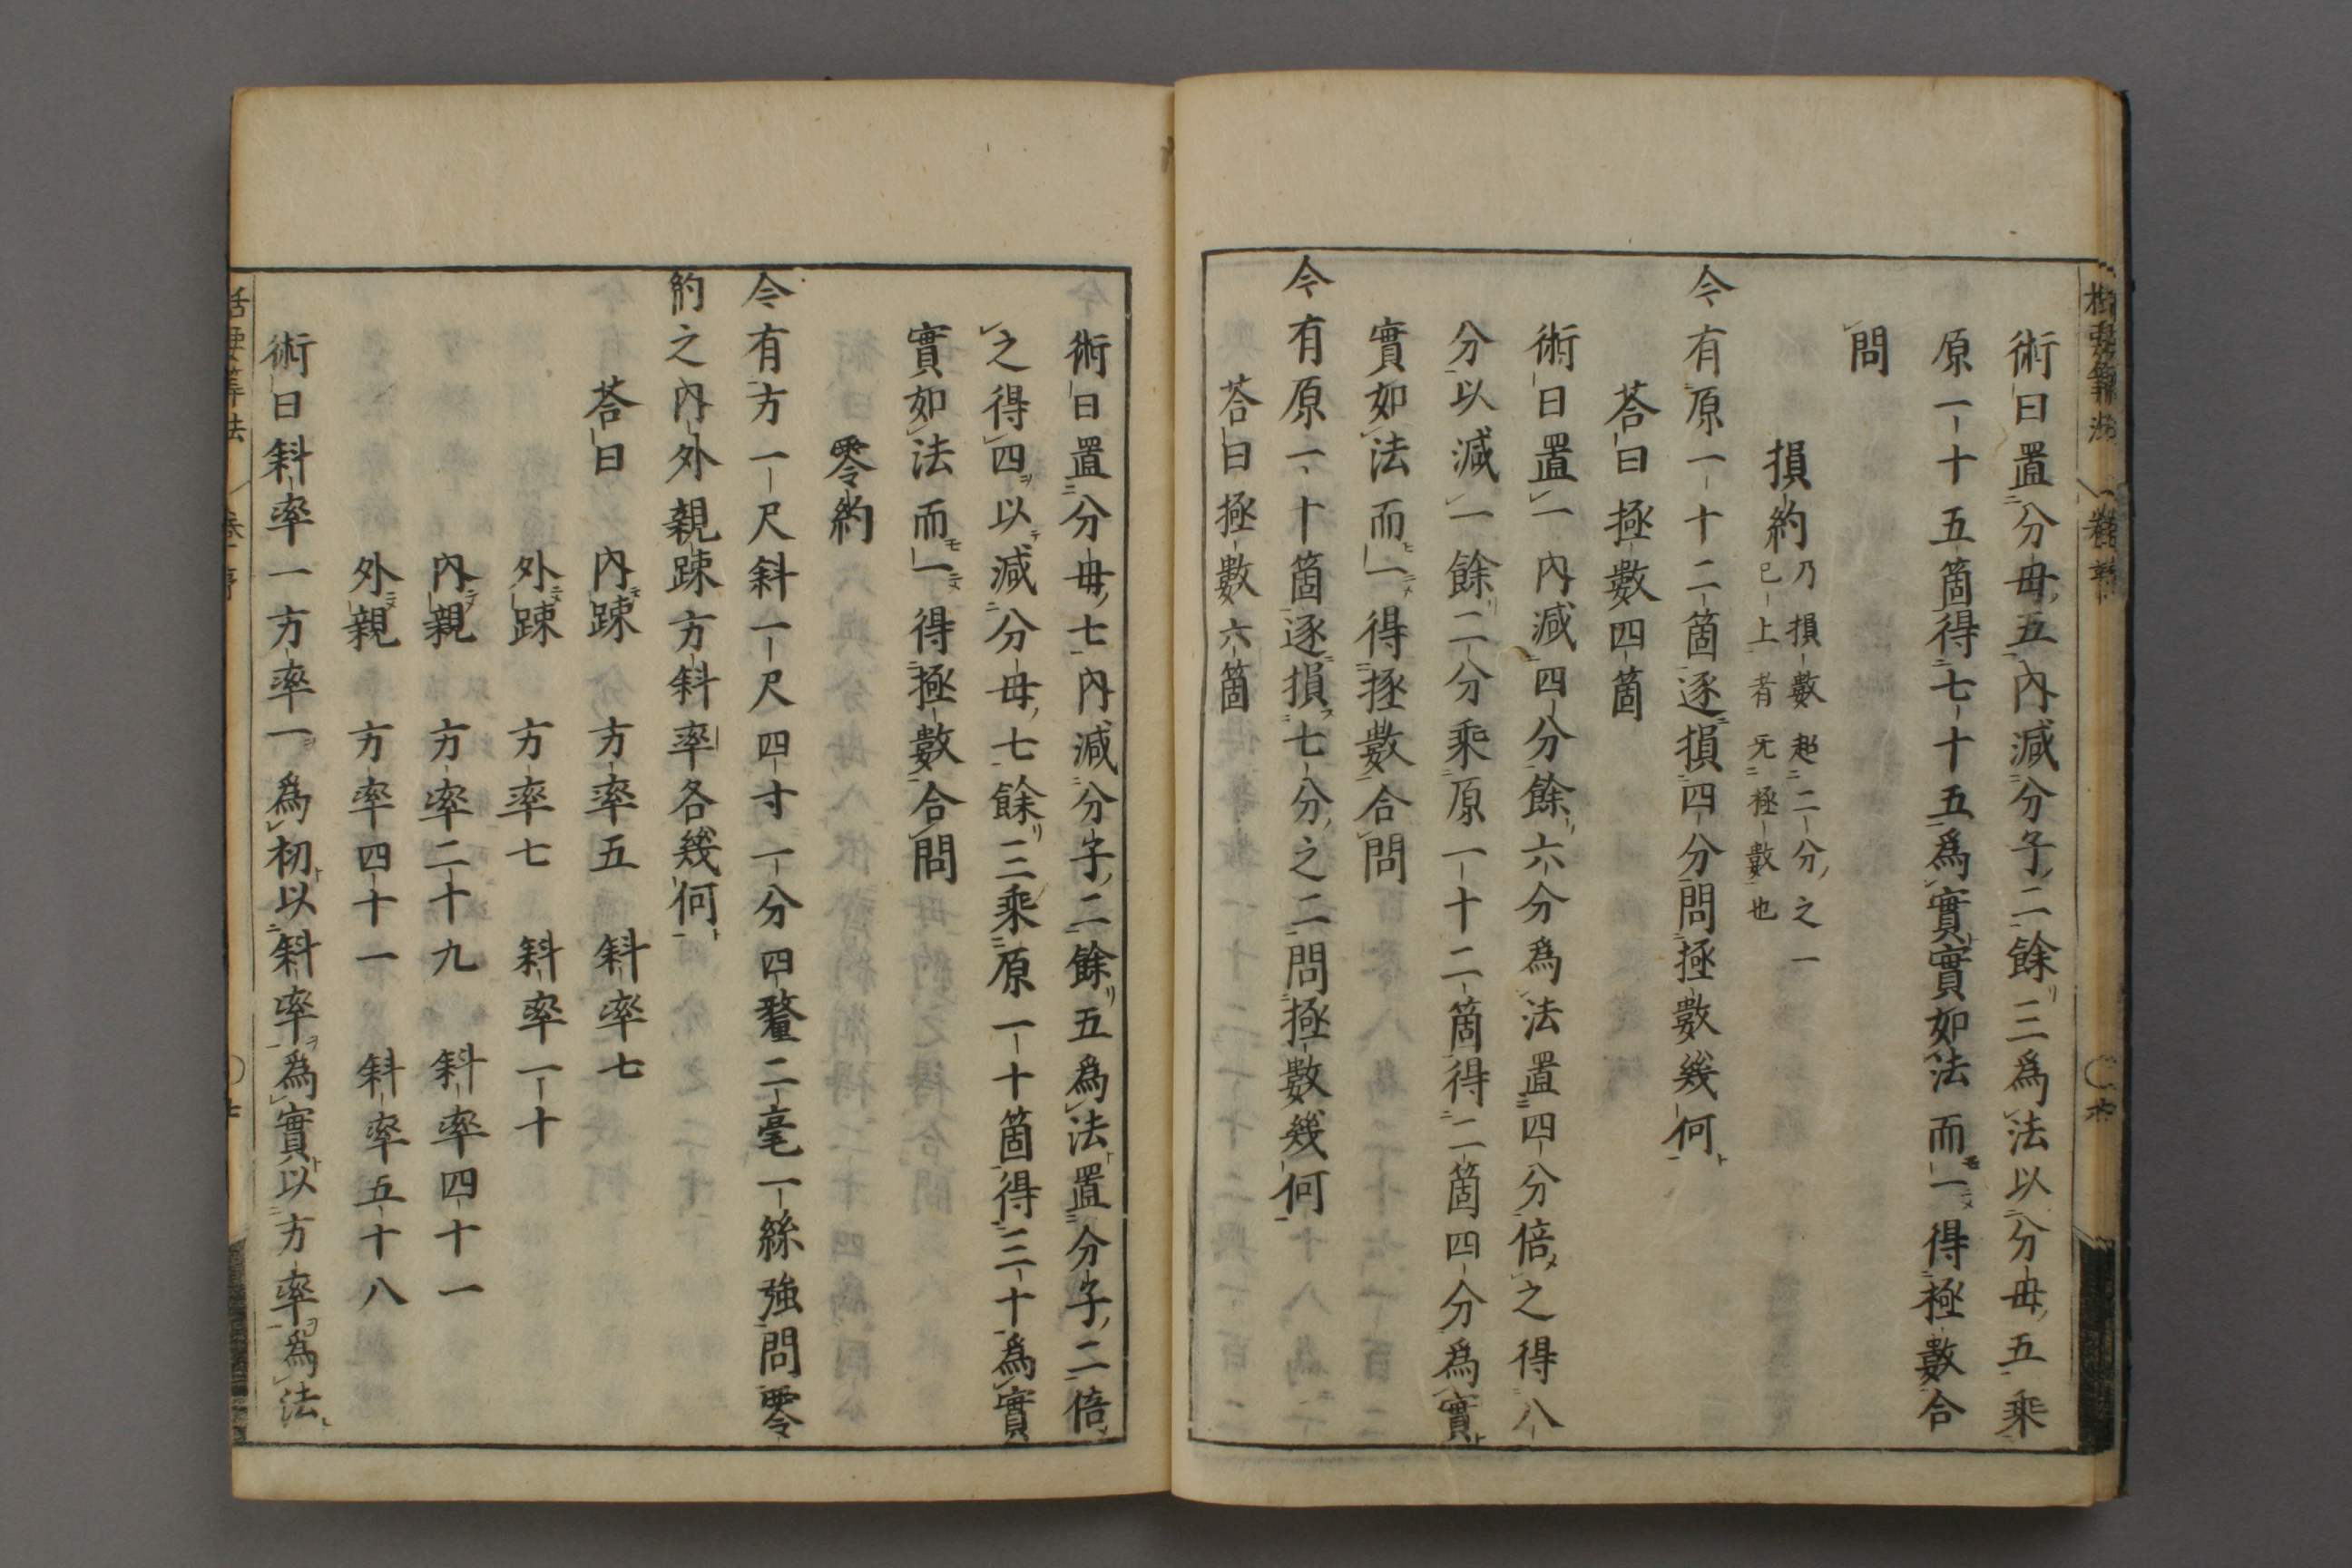 術曰置分母五內減分子二餘三爲法以分母五乘
原一十五箇得七十五爲實實如法而一得極數合
問
損約乃損數超二分之一
已上者无極數也
今有原一十二箇逐損四分問極數幾何
荅曰極數四箇
術曰置一內減四分餘六分爲法置四分倍之得八
分以減一餘二分乘原一十二箇得二箇四分爲實
實如法而一得極數合問
今有原一十箇逐損七分之二問極數幾何
荅曰極數六箇
術曰置分母七內減分子二餘五爲法置分子二倍
之得四以減分母七餘三乘原一十箇得三十爲實
實如法而一得極數合問
零約
今有方一尺斜一尺四寸一分四釐二毫一絲強問零
約之內外親疎方斜率各幾何
荅曰 內疎 方率五 斜率七
外疎 方率七 斜率一十
內親 方率二十九 斜率四十一
外親 方率四十一 斜率五十八
術曰斜率一方率一爲初以斜率爲實以方率爲法
括要筭法 卷一亨 七